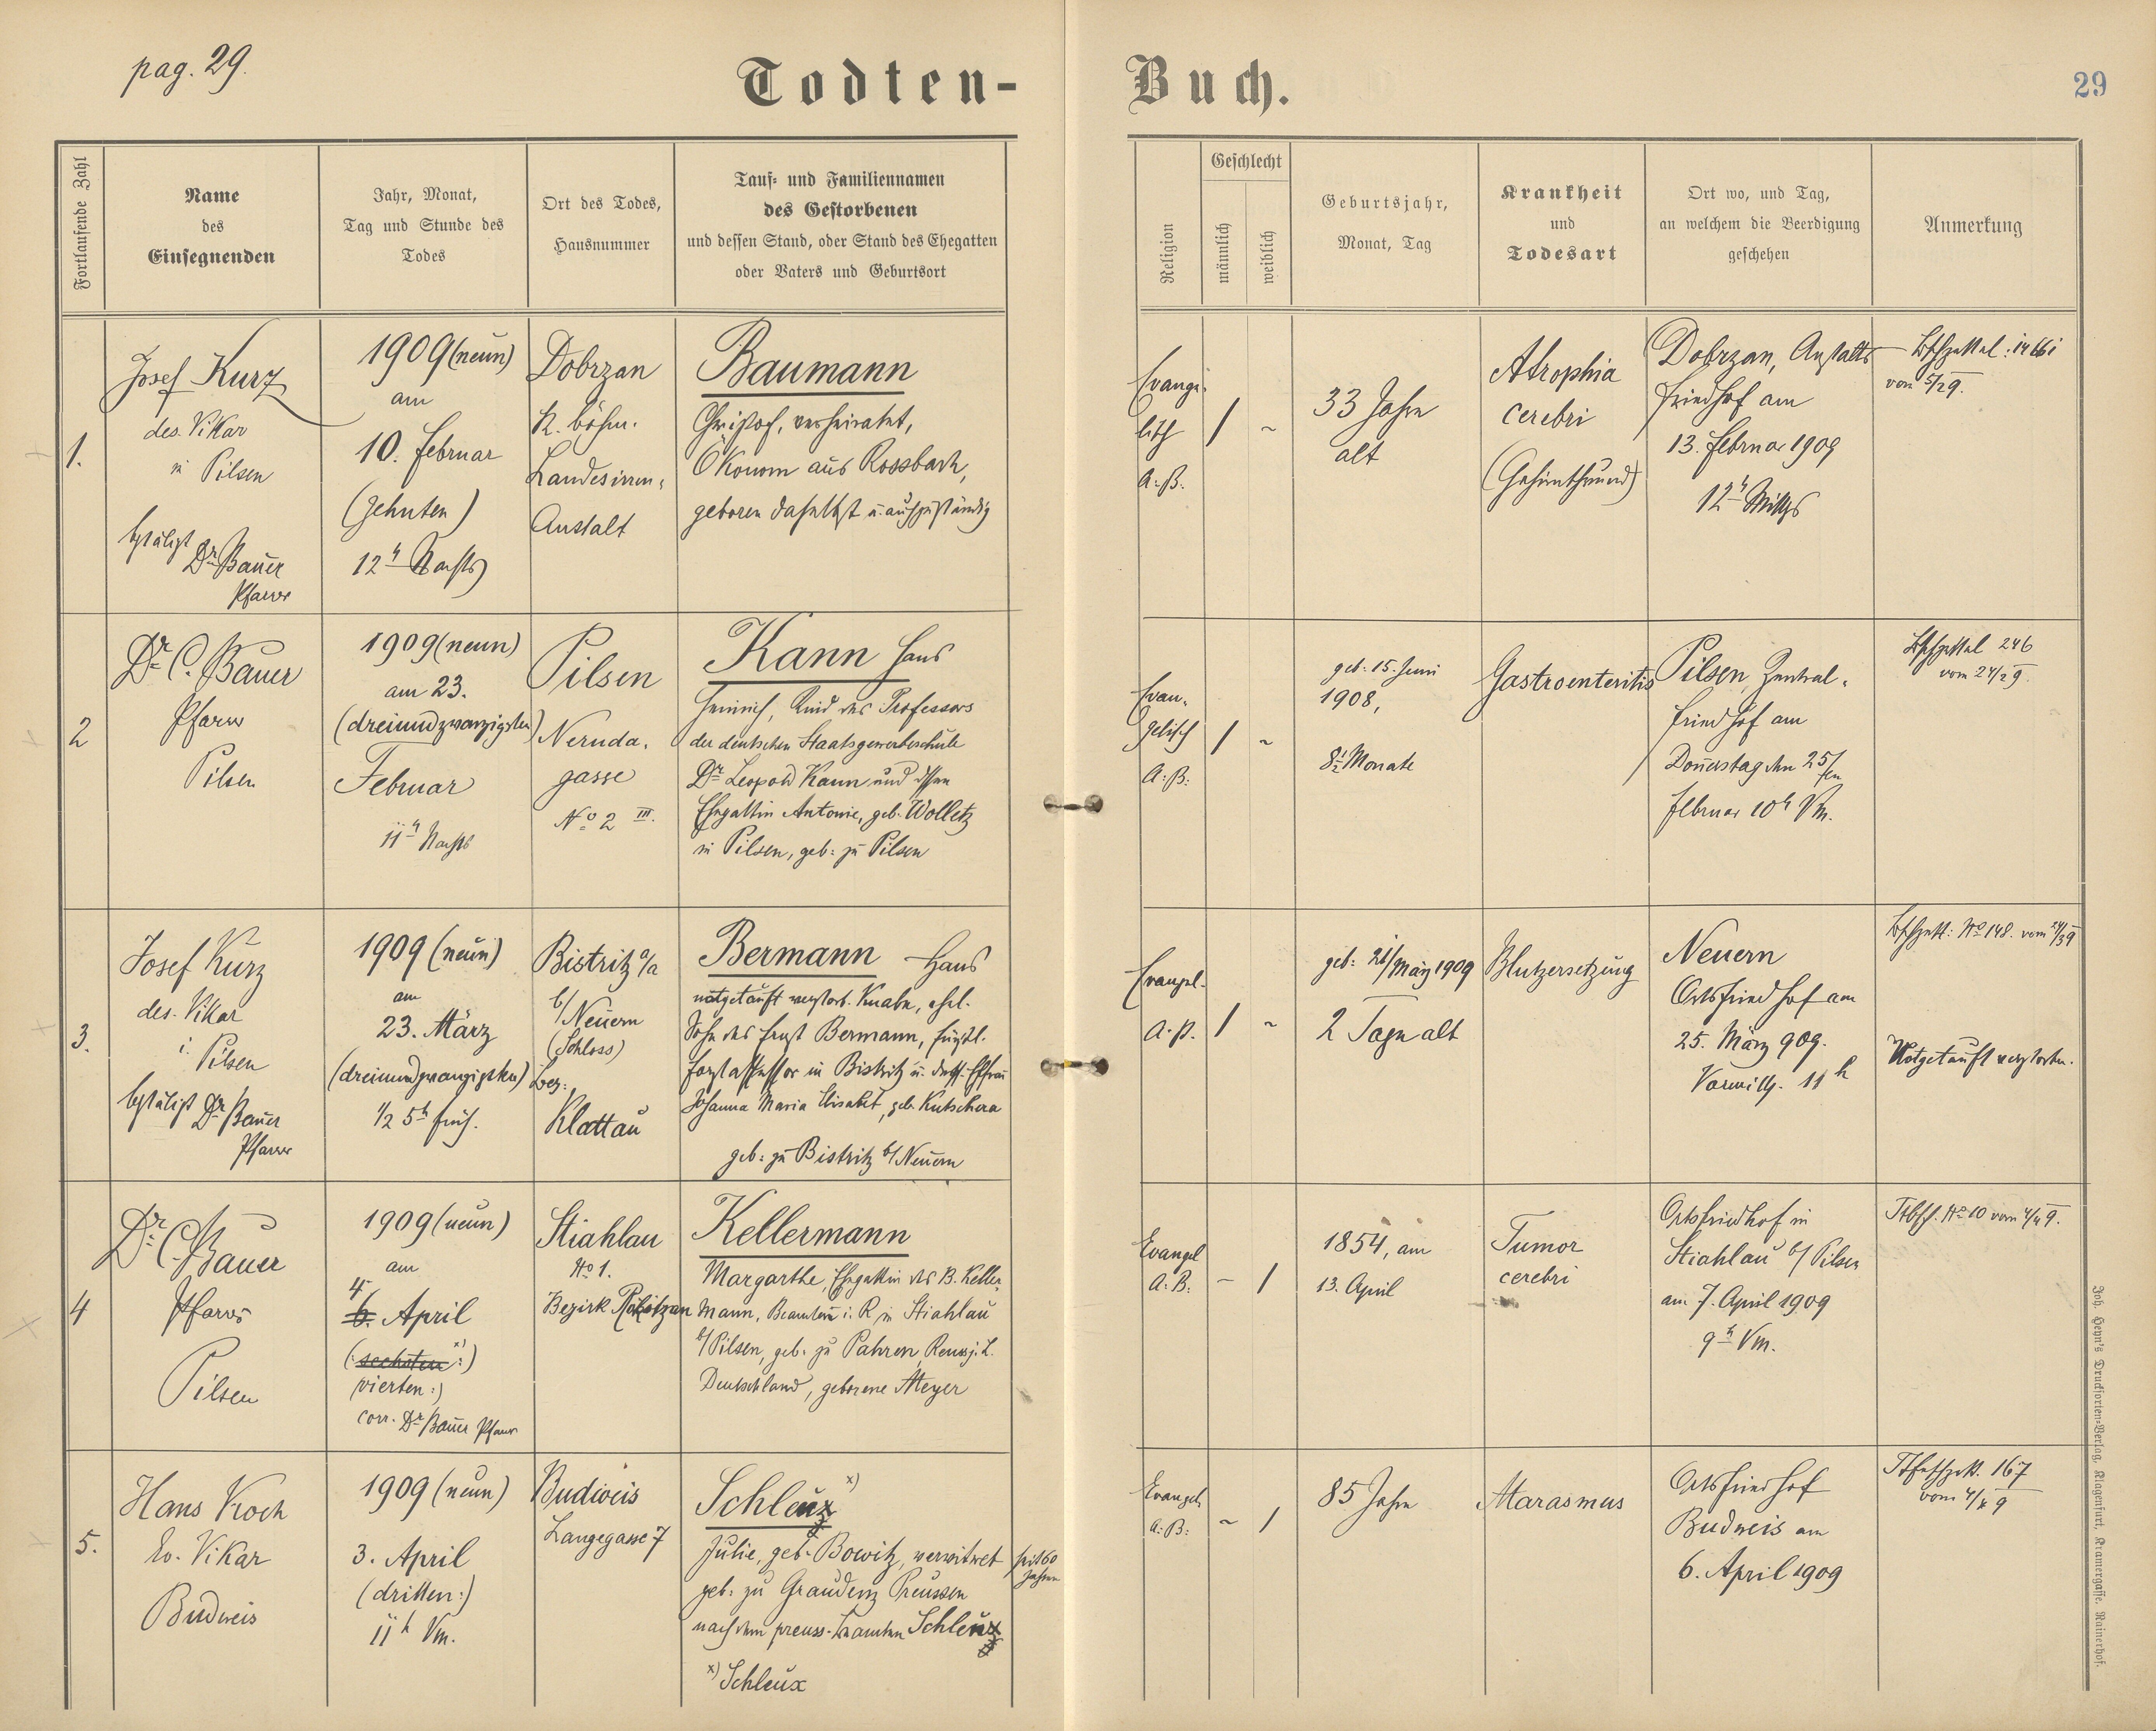 pag. 29.
Todten-Buch.
29
Fortlaufende Zahl
Name
des
Einsegnenden
Jahr, Monat,
Tag und Stunde des
Todes
Ort des Todes,
Hausnummer
Tauf- und Familiennamen
des Gestorbenen
und dessen Stand, oder Stand des Ehegatten
oder Vaters und Geburtsort
Religion
Geschlecht
männlich
weiblich
Geburtsjahr,
Monat, Tag
Krankheit
und
Todesart
Ort wo, und Tag,
an welchem die Beerdigung
geschehen
Anmerkung
1.
Josef Kurz
des. Vikar
in Pilsen
bestätigt
Dr Bauer
Pfarrer
1909 (neun)
am
10. Februar
(zehnten)
12h Nachts
Dobrzan
k. böhm.
Landesirren-
Anstalt
Baumann
Christof, verheiratet,
Ökonom aus Rossbach,
geboren daselbst u. auch zuständig
Evange-
lisch
A. B.
/
~
33 Jahre
alt
Atrophia
cerebri
(Gehirnschwund)
Dobrzan, Anstalts-
friedhof am
13. Februar 1909
12h Mittgs
vom 5/2 9.
2
Dr C. Bauer
Pfarrer
Pilsen
1909 (neun)
am 23.
(dreiundzwanzigsten)
Februar
11h Nachts
Pilsen
Neruda-
gasse
No 2 III.
Kann Hans
Heinrich, Kind des Professors
der deutschen Staatsgewerbeschule
Dr Leopold Kann und dessen
Ehegattin Antonie, geb. Wolletz
in Pilsen, geb: zu Pilsen
Evan-
gelisch
A. B.
/
~
geb. 15. Juni
1908,
8½ Monate
Gastroenteritis
Pilsen, Zentral-
friedhof am
Donnerstag den 25/ten
Februar 10h Vm.
246
vom 24/2 9.
3.
Josef Kurz
des. Vikar
i. Pilsen
bestätigt Dr Bauer
Pfarrer
1909 (neun)
am
23. März
(dreiundzwanzigsten)
1/2 5h früh.
Bistritz a/a
b/ Neuern
(Schloss)
Bez:
Klattau
Bermann Hans
notgetauft verstorb. Knabe, ehel.
Sohn des Ernst Bermann, fürstl.
Forstassessor in Bistritz u. dess. Ehefrau
Johanna Maria Elisabet, geb. Kutschera
geb: zu Bistritz b/ Neuern
Evangel.
A. B.
/
~
geb: 21/März 1909
2 Tage alt
Blutzersetzung
Neuern
Ortsfriedhof am
25. März 909.
Vormittg. 11h
No 148. vom 24/3 9
Notgetauft verstorben.
4
Dr C. Bauer
Pfarrer
Pilsen
1909 (neun)
am
4
6. April
(: sechsten x) :)
(vierten :)
corr. Dr Bauer Pfarrer
Stiahlau
No 1.
Bezirk Rokitzan
Kellermann
Margarthe, Ehegattin des B. Keller-
mann, Beamten i. R. in Stiahlau
b/ Pilsen, geb. zu Pahren, Reuss j. L.
Deutschland, geborene Meyer
Evangel
A. B.
-
/
1854, am
13. April
Tumor
cerebri
Ortsfriedhof in
Stiahlau b/ Pilsen
am 7. April 1909
9h Vm.
No 10 vom 4/4 9.
5.
Hans Koch
Ev. Vikar
Budweis
1909 (neun)
3. April
(dritten :)
11h Vm.
Budweis
Langegasse 7
Schleux x)
Julie, geb. Bowitz, verwitwet seit 60
Jahren
geb: zu Graudenz Preussen
nach dem preuss. Beamten Schleux
x) Schleux
Evangel.
A. B.
~
/
85 Jahre
Marasmus
Ortsfriedhof
Budweis am
6. April 1909
167
Joh. Heyn's Drucksorten-Verlag, Klagenfurt, Kramergasse, Rainerhof.